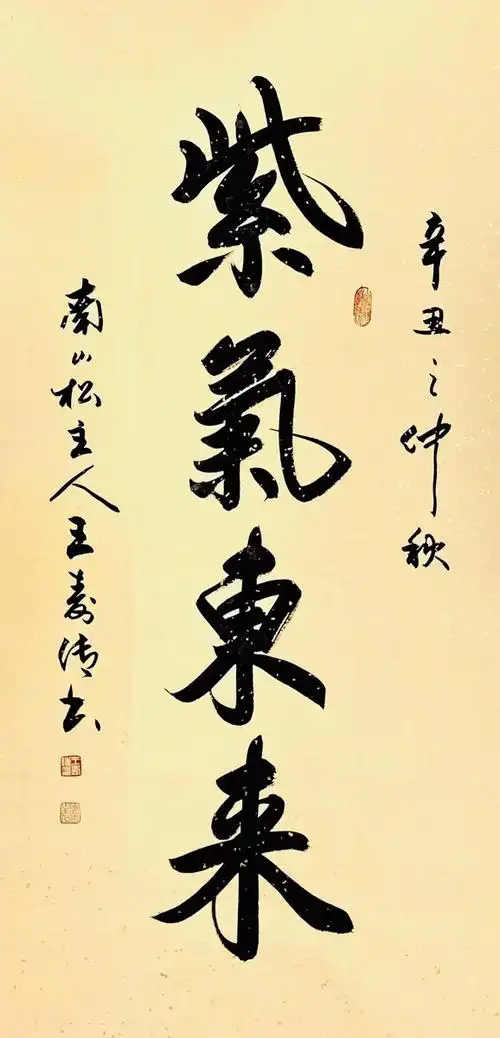 辛丑之仲秋
紫氣東来
南山松主人王寿清书